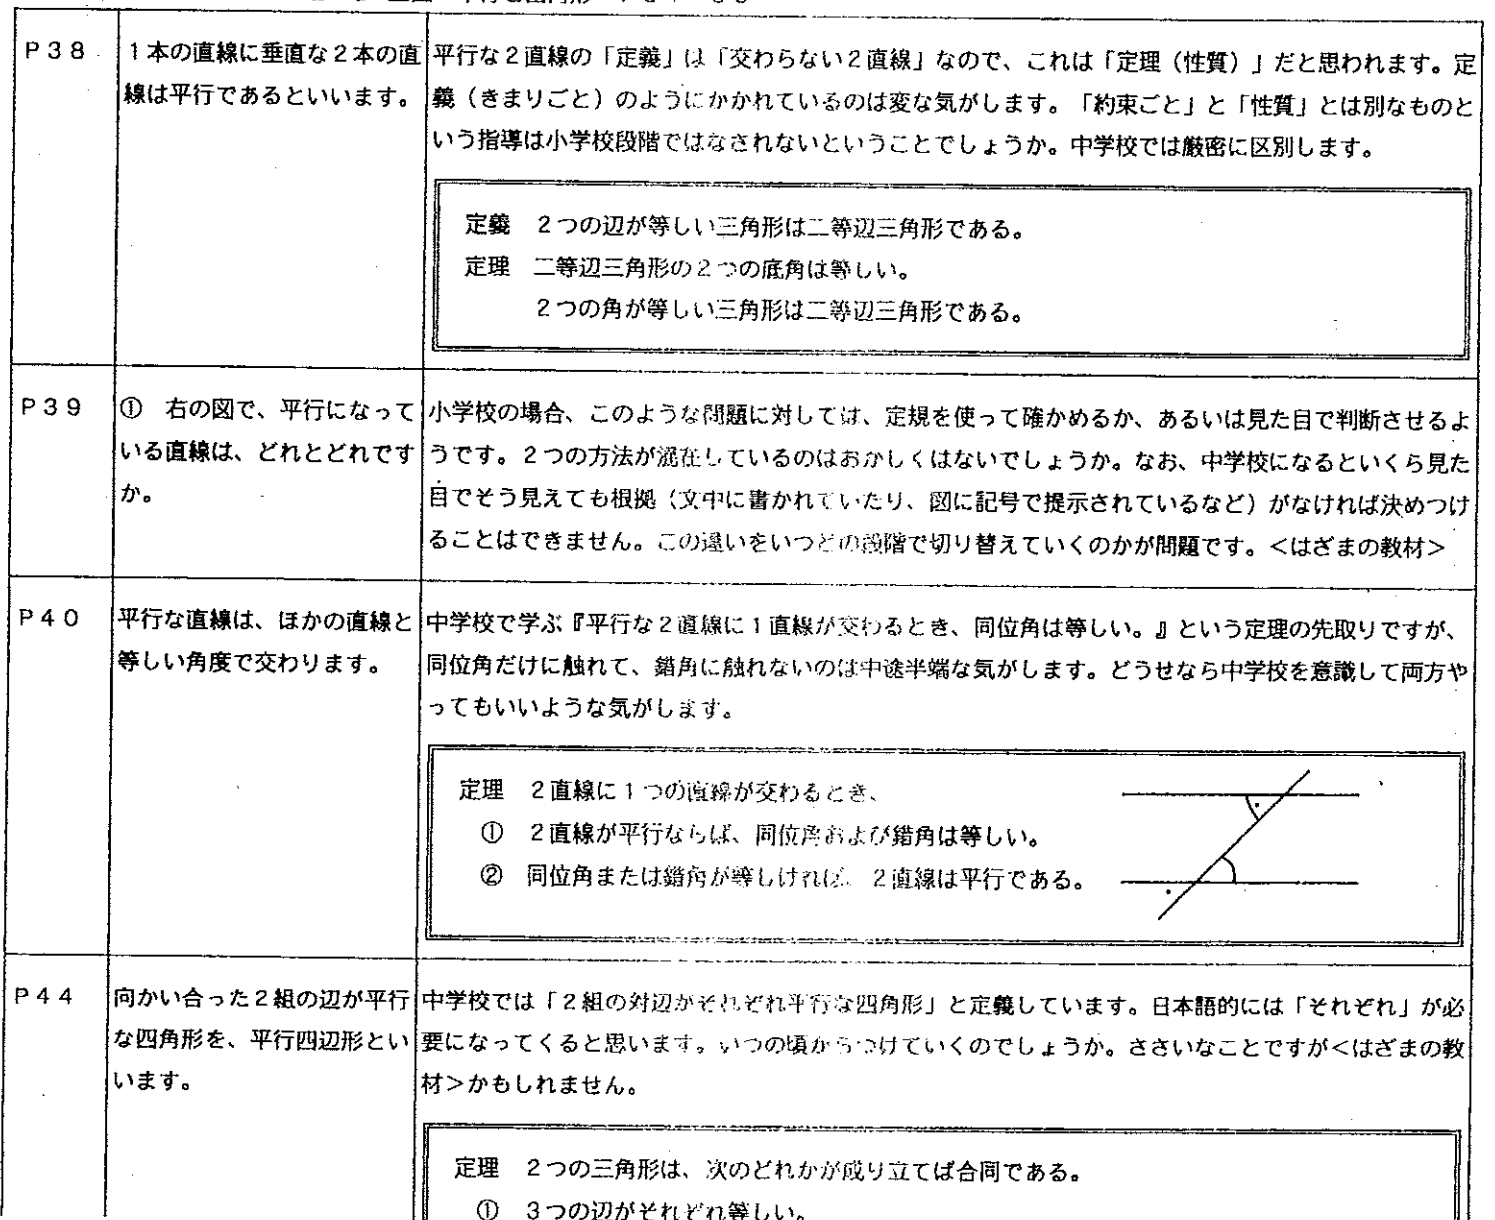 P38
1本の直線に垂直な2本の直
線は平行であるといいます。
平行な2直線の「定義」は「交わらない2直線」なので、これは「定理（性質）」だと思われます。定
義（きまりごと）のようにかかれているのは変な気がします。「約束ごと」と「性質」とは別なものと
いう指導は小学校段階ではなされないということでしょうか。中学校では厳密に区別します。
定義　2つの辺が等しい三角形は二等辺三角形である。
定理　二等辺三角形の2つの底角は等しい。
2つの角が等しい三角形は二等辺三角形である。
P39
①　右の図で、平行になって
いる直線は、どれとどれです
か。
小学校の場合、このような問題に対しては、定規を使って確かめるか、あるいは見た目で判断させるよ
うです。2つの方法が混在しているのはおかしくはないでしょうか。なお、中学校になるといくら見た
目でそう見えても根拠（文中に書かれていたり、図に記号で提示されているなど）がなければ決めつけ
ることはできません。この違いをいつどの段階で切り替えていくのかが問題です。＜はざまの教材＞
P40
平行な直線は、ほかの直線と
等しい角度で交わります。
中学校で学ぶ『平行な2直線に1直線が交わるとき、同位角は等しい。』という定理の先取りですが、
同位角だけに触れて、錯角に触れないのは中途半端な気がします。どうせなら中学校を意識して両方や
ってもいいような気がします。
定理　2直線に1つの直線が交わるとき、
①　2直線が平行ならば、同位角および錯角は等しい。
②　同位角または錯角が等しければ、2直線は平行である。
P44
向かい合った2組の辺が平行
な四角形を、平行四辺形とい
います。
中学校では「2組の対辺がそれぞれ平行な四角形」と定義しています。日本語的には「それぞれ」が必
要になってくると思います。いつの頃からつけていくのでしょうか。ささいなことですが＜はざまの教
材＞かもしれません。
定理　2つの三角形は、次のどれかが成り立てば合同である。
①　3つの辺がそれぞれ等しい。